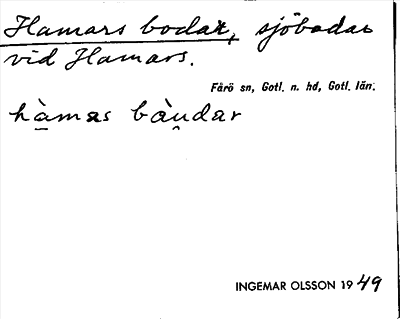 Hamars bodar, sjöbodar
vid Hamars.
Fårö sn, Gotl. n. hd, Gotl. län.
hàmas bàu̯dar
INGEMAR OLSSON 1949